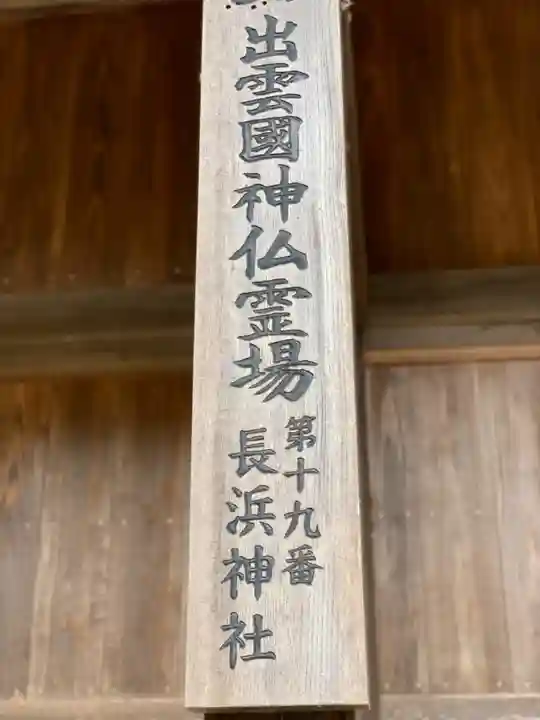 出雲國神仏霊場
第十九番
長浜神社